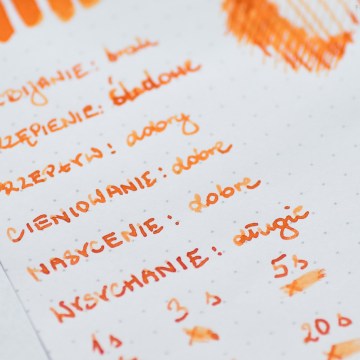 BIJANIE: brak
RZĘPIENIE: śladowe
PRZEPŁYW: dobry
CIENIOWANIE: dobre
NASYCENIE: dobre
WYSYCHANIE: długie
1s 3s 5s
20s